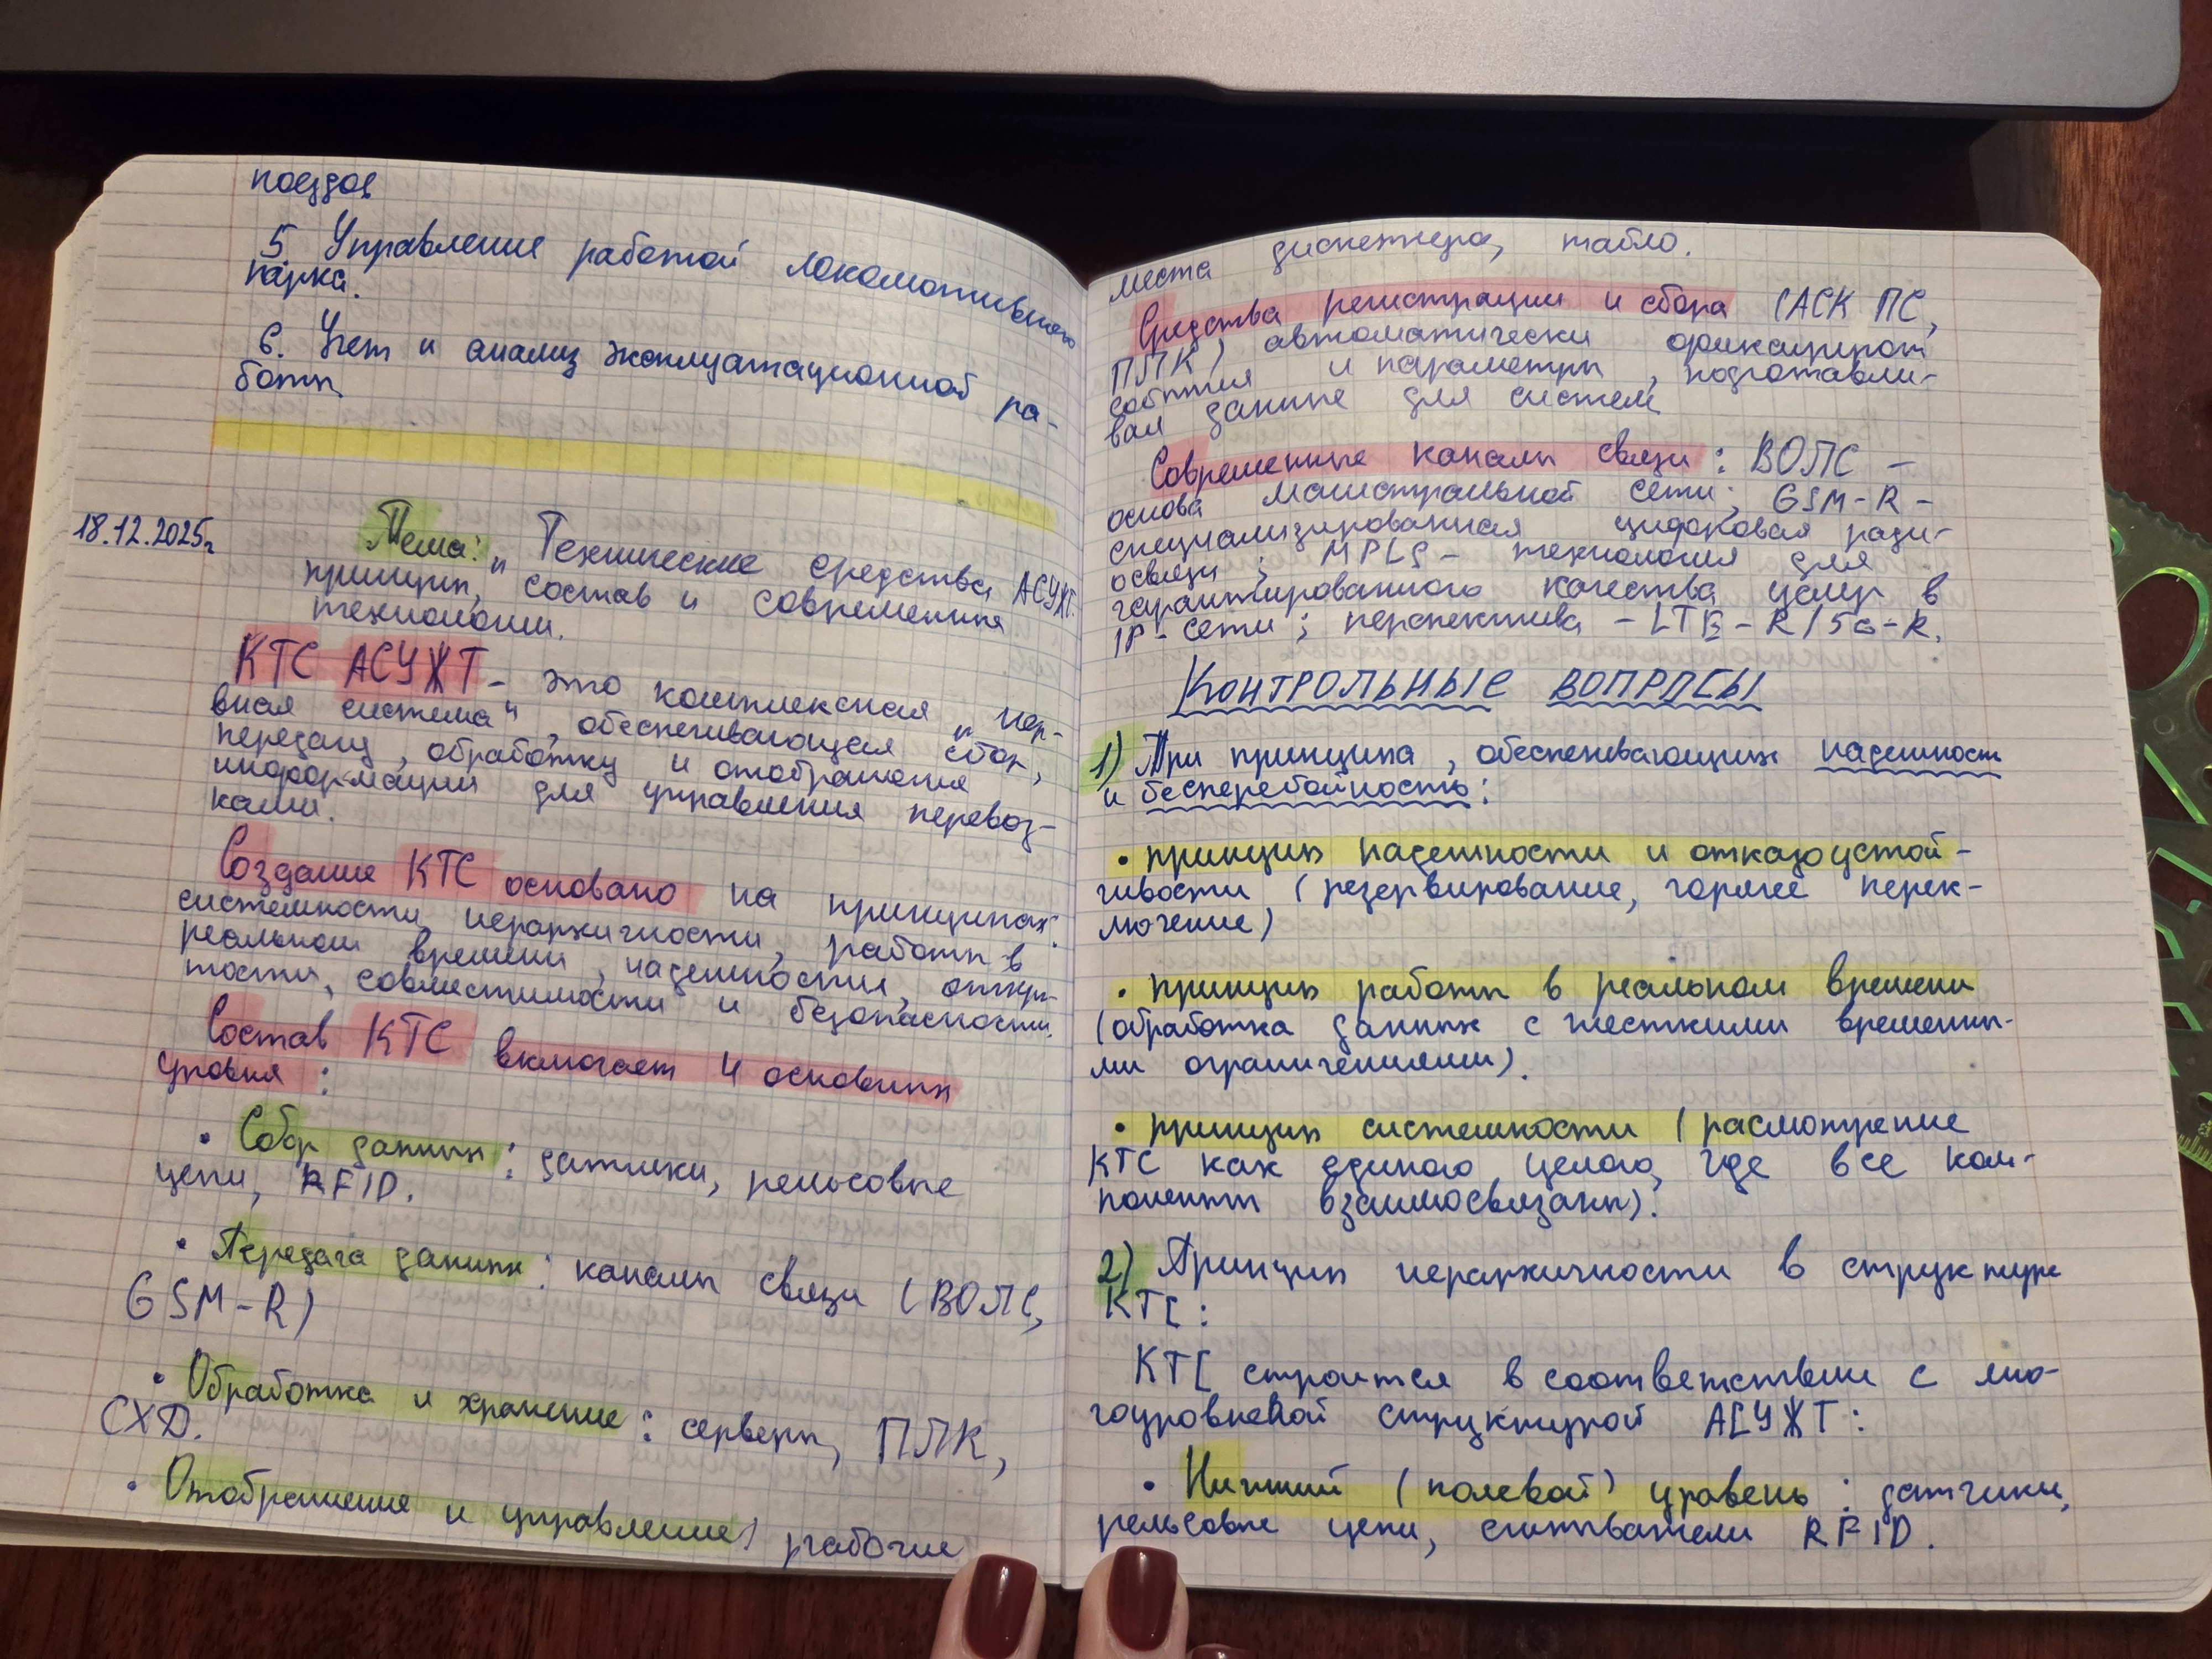 поездов
5 Управление работой локомотивного
парка.
6. Учет и анализ эксплуатационной ра-
боты
18.12.2025г
Тема: "Технические средства АСУЖТ:
принцип, состав и современные
технологии.
КТС АСУЖТ - это комплексная "нер-
вная система", обеспечивающая сбор,
передачу, обработку и отображение
информации для управления перевоз-
ками.
Создание КТС основано на принципах:
системности, иерархичности, работы в
реальном времени, надежности, откры-
тости, совместимости и безопасности.
Состав КТС включает 4 основных
уровня:
• Сбор данных: датчики, рельсовые
цепи, RFID.
• Передача данных: каналы связи (ВОЛС,
GSM-R)
• Обработка и хранение: серверы, ПЛК,
СХД.
• Отображение и управление) рабочие
места диспетчера, табло.
Средства регистрации и сбора (АСК ПС,
ПЛК) автоматически фиксируют
события и параметры, подготавли-
вая данные для систем
Современные каналы связи: ВОЛС -
основа магистральной сети; GSM-R -
специализированная цифровая ради-
освязи; MPLS - технология для
гарантированного качества услуг в
IP-сети; перспектива - LTE-R/5G-R.
КОНТРОЛЬНЫЕ ВОПРОСЫ
1) Три принципа, обеспечивающих надежность
и бесперебойность:
• принцип надежности и отказоустой-
чивости (резервирование, горячее перек-
лючение)
• принцип работы в реальном времени
(обработка данных с жесткими временны-
ми ограничениями).
• принцип системности (расмотрение
КТС как единого целого, где все ком-
поненты взаимосвязаны).
2) Принцип иерархичности в структуре
КТС:
КТС строится в соответствии с мно-
гоуровневой структурой АСУЖТ:
• Низший (полевой) уровень: датчики,
рельсовые цепи, считыватели RFID.